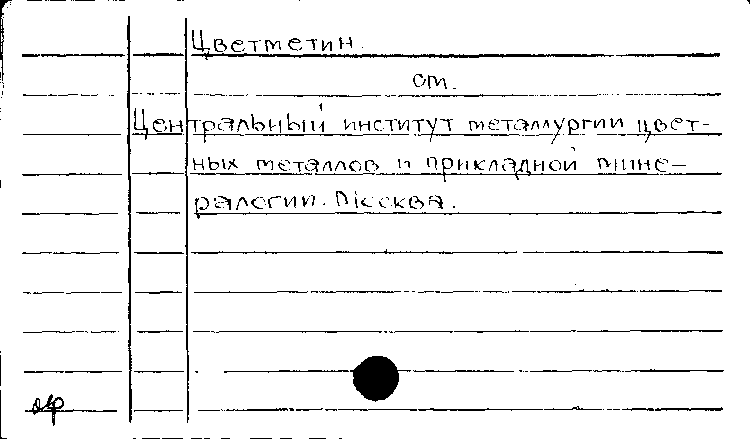 Цветметин.
см.
Центральный институт металлургии цвет-
ных металлов и прикладной мине-
ралогии. Москва.